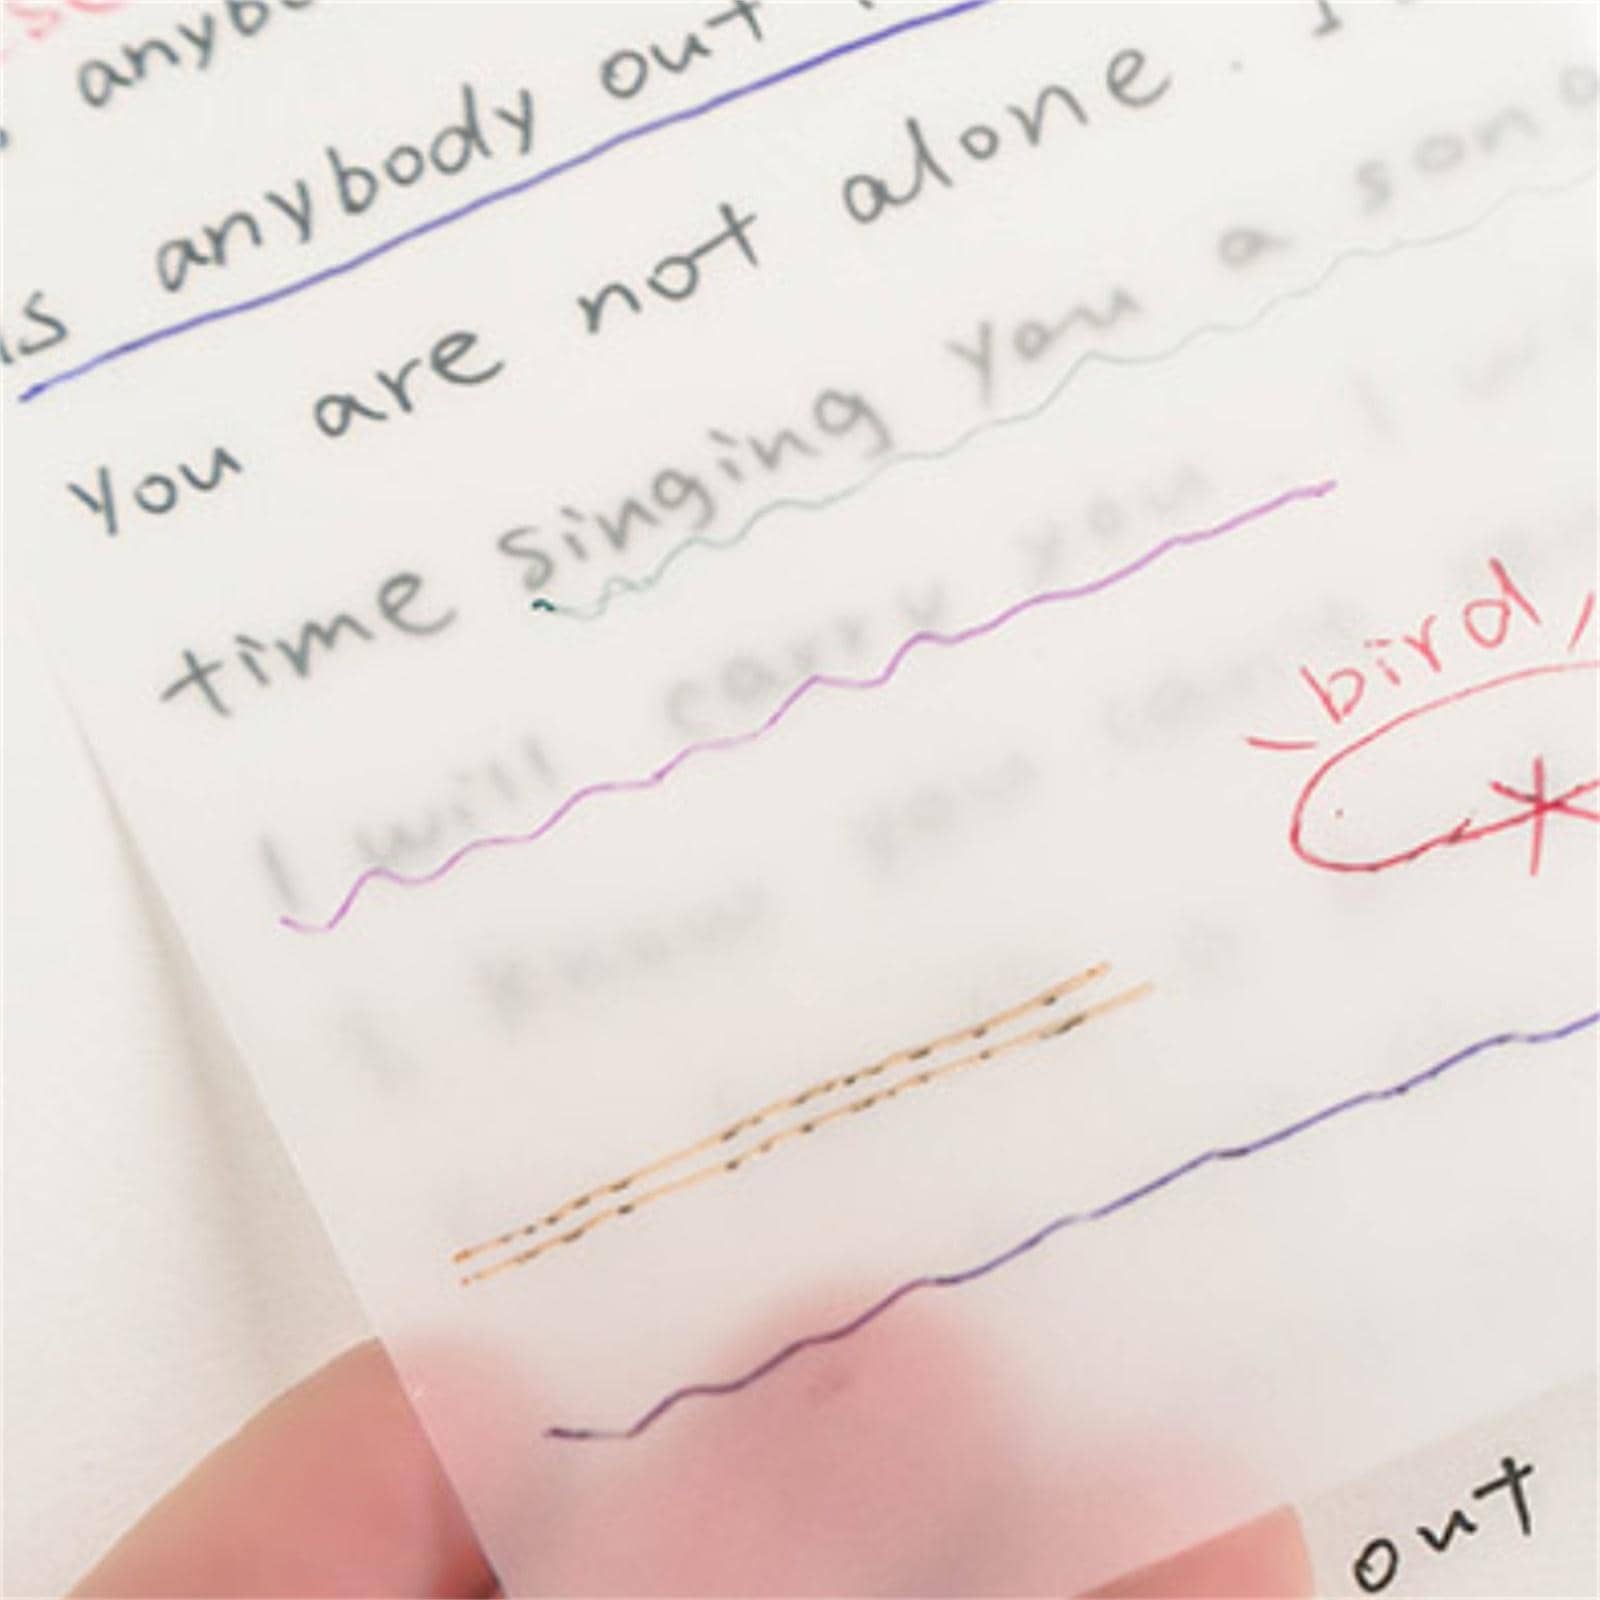 anybo
is anybody out
You are not alone. I
time singing you a song
I will carry you
I know you can't
bird,
out